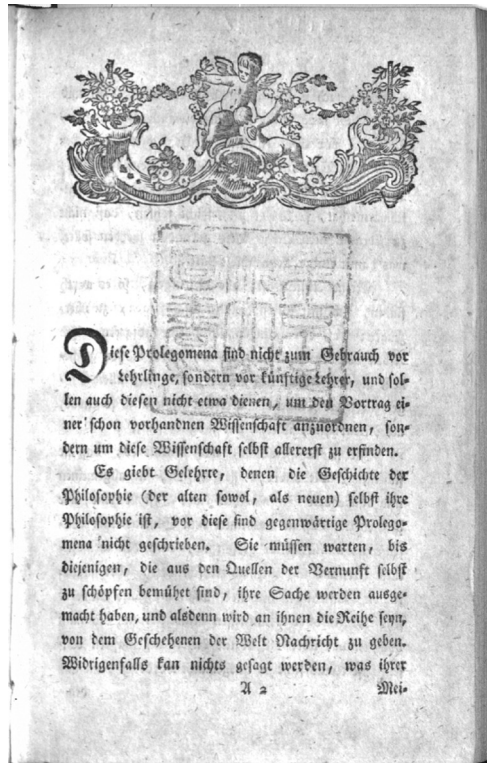 Diese Prolegomena sind nicht zum Gebrauch vor
Lehrlinge, sondern vor künftige Lehrer, und sol-
len auch diesen nicht etwa dienen, um den Vortrag ei-
ner schon vorhandnen Wissenschaft anzuordnen, son-
dern um diese Wissenschaft selbst allererst zu erfinden.
Es giebt Gelehrte, denen die Geschichte der
Philosophie (der alten sowol, als neuen) selbst ihre
Philosophie ist, vor diese sind gegenwärtige Prolego-
mena nicht geschrieben. Sie müssen warten, bis
diejenigen, die aus den Quellen der Vernunft selbst
zu schöpfen bemühet sind, ihre Sache werden ausge-
macht haben, und alsdenn wird an ihnen die Reihe seyn,
von dem Geschehenen der Welt Nachricht zu geben.
Widrigenfalls kan nichts gesagt werden, was ihrer
A 2 Mei-